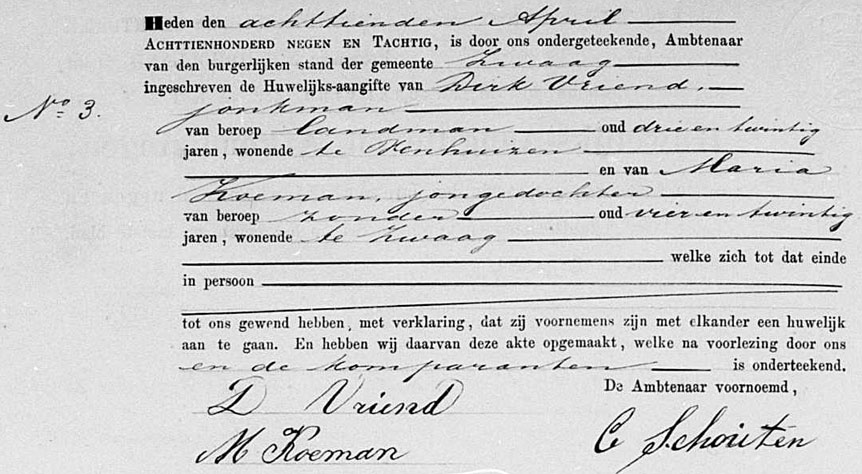 Heden den achttienden April
ACHTTIENHONDERD NEGEN EN TACHTIG, is door ons ondergeteekende, Ambtenaar
van den burgerlijken stand der gemeente Zwaag
ingeschreven de Huwelijks-aangifte van Dirk Vriend,
No. 3.
jonkman
van beroep landman oud drie en twintig
jaren, wonende te Venhuizen
en van Maria
Koeman, jongedochter
van beroep zonder oud vier en twintig
jaren, wonende te Zwaag
welke zich tot dat einde
in persoon
tot ons gewend hebben, met verklaring, dat zij voornemens zijn met elkander een huwelijk
aan te gaan. En hebben wij daarvan deze akte opgemaakt, welke na voorlezing door ons
en de komparanten is onderteekend.
De Ambtenaar voornoemd,
D Vriend
M Koeman
C Schouten